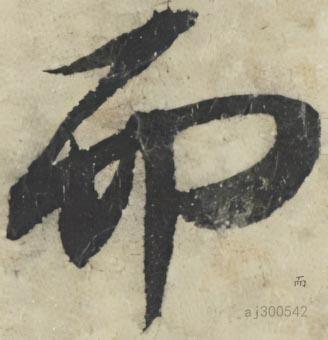 印
aj300542